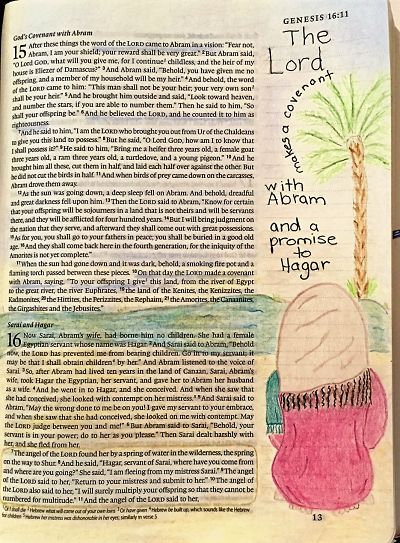 GENESIS 16:11
God's Covenant with Abram
15 After these things the word of the LORD came to Abram in a vision: "Fear not,
Abram, I am your shield; your reward shall be very great." 2 But Abram said,
"O Lord GOD, what will you give me, for I continue¹ childless, and the heir of my
house is Eliezer of Damascus?" 3 And Abram said, "Behold, you have given me no
offspring, and a member of my household will be my heir." 4 And behold, the word
of the LORD came to him: "This man shall not be your heir; your very own son²
shall be your heir." 5 And he brought him outside and said, "Look toward heaven,
and number the stars, if you are able to number them." Then he said to him, "So
shall your offspring be." 6 And he believed the LORD, and he counted it to him as
righteousness.
7 And he said to him, "I am the LORD who brought you out from Ur of the Chaldeans
to give you this land to possess." 8 But he said, "O Lord GOD, how am I to know that
I shall possess it?" 9 He said to him, "Bring me a heifer three years old, a female goat
three years old, a ram three years old, a turtledove, and a young pigeon." 10 And he
brought him all these, cut them in half, and laid each half over against the other. But
he did not cut the birds in half. 11 And when birds of prey came down on the carcasses,
Abram drove them away.
12 As the sun was going down, a deep sleep fell on Abram. And behold, dreadful
and great darkness fell upon him. 13 Then the LORD said to Abram, "Know for certain
that your offspring will be sojourners in a land that is not theirs and will be servants
there, and they will be afflicted for four hundred years. 14 But I will bring judgment on
the nation that they serve, and afterward they shall come out with great possessions.
15 As for you, you shall go to your fathers in peace; you shall be buried in a good old
age. 16 And they shall come back here in the fourth generation, for the iniquity of the
Amorites is not yet complete."
17 When the sun had gone down and it was dark, behold, a smoking fire pot and a
flaming torch passed between these pieces. 18 On that day the LORD made a covenant
with Abram, saying, "To your offspring I give³ this land, from the river of Egypt
to the great river, the river Euphrates, 19 the land of the Kenites, the Kenizzites, the
Kadmonites, 20 the Hittites, the Perizzites, the Rephaim, 21 the Amorites, the Canaanites,
the Girgashites and the Jebusites."
Sarai and Hagar
16 Now Sarai, Abram's wife, had borne him no children. She had a female
Egyptian servant whose name was Hagar. 2 And Sarai said to Abram, "Behold
now, the LORD has prevented me from bearing children. Go in to my servant; it
may be that I shall obtain children⁴ by her." And Abram listened to the voice of
Sarai. 3 So, after Abram had lived ten years in the land of Canaan, Sarai, Abram's
wife, took Hagar the Egyptian, her servant, and gave her to Abram her husband
as a wife. 4 And he went in to Hagar, and she conceived. And when she saw that
she had conceived, she looked with contempt on her mistress.⁵ 5 And Sarai said to
Abram, "May the wrong done to me be on you! I gave my servant to your embrace,
and when she saw that she had conceived, she looked on me with contempt. May
the LORD judge between you and me!" 6 But Abram said to Sarai, "Behold, your
servant is in your power; do to her as you please." Then Sarai dealt harshly with
her, and she fled from her.
7 The angel of the LORD found her by a spring of water in the wilderness, the spring
on the way to Shur. 8 And he said, "Hagar, servant of Sarai, where have you come from
and where are you going?" She said, "I am fleeing from my mistress Sarai." 9 The angel
of the LORD said to her, "Return to your mistress and submit to her." 10 The angel of
the LORD also said to her, "I will surely multiply your offspring so that they cannot be
numbered for multitude." 11 And the angel of the LORD said to her,
1 Or I shall die 2 Hebrew what will come out of your own loins 3 Or have given 4 Hebrew be built up, which sounds like the Hebrew
for children 5 Hebrew her mistress was dishonorable in her eyes; similarly in verse 5
The
Lord
makes a covenant
with
Abram
and a
promise
to
Hagar
13